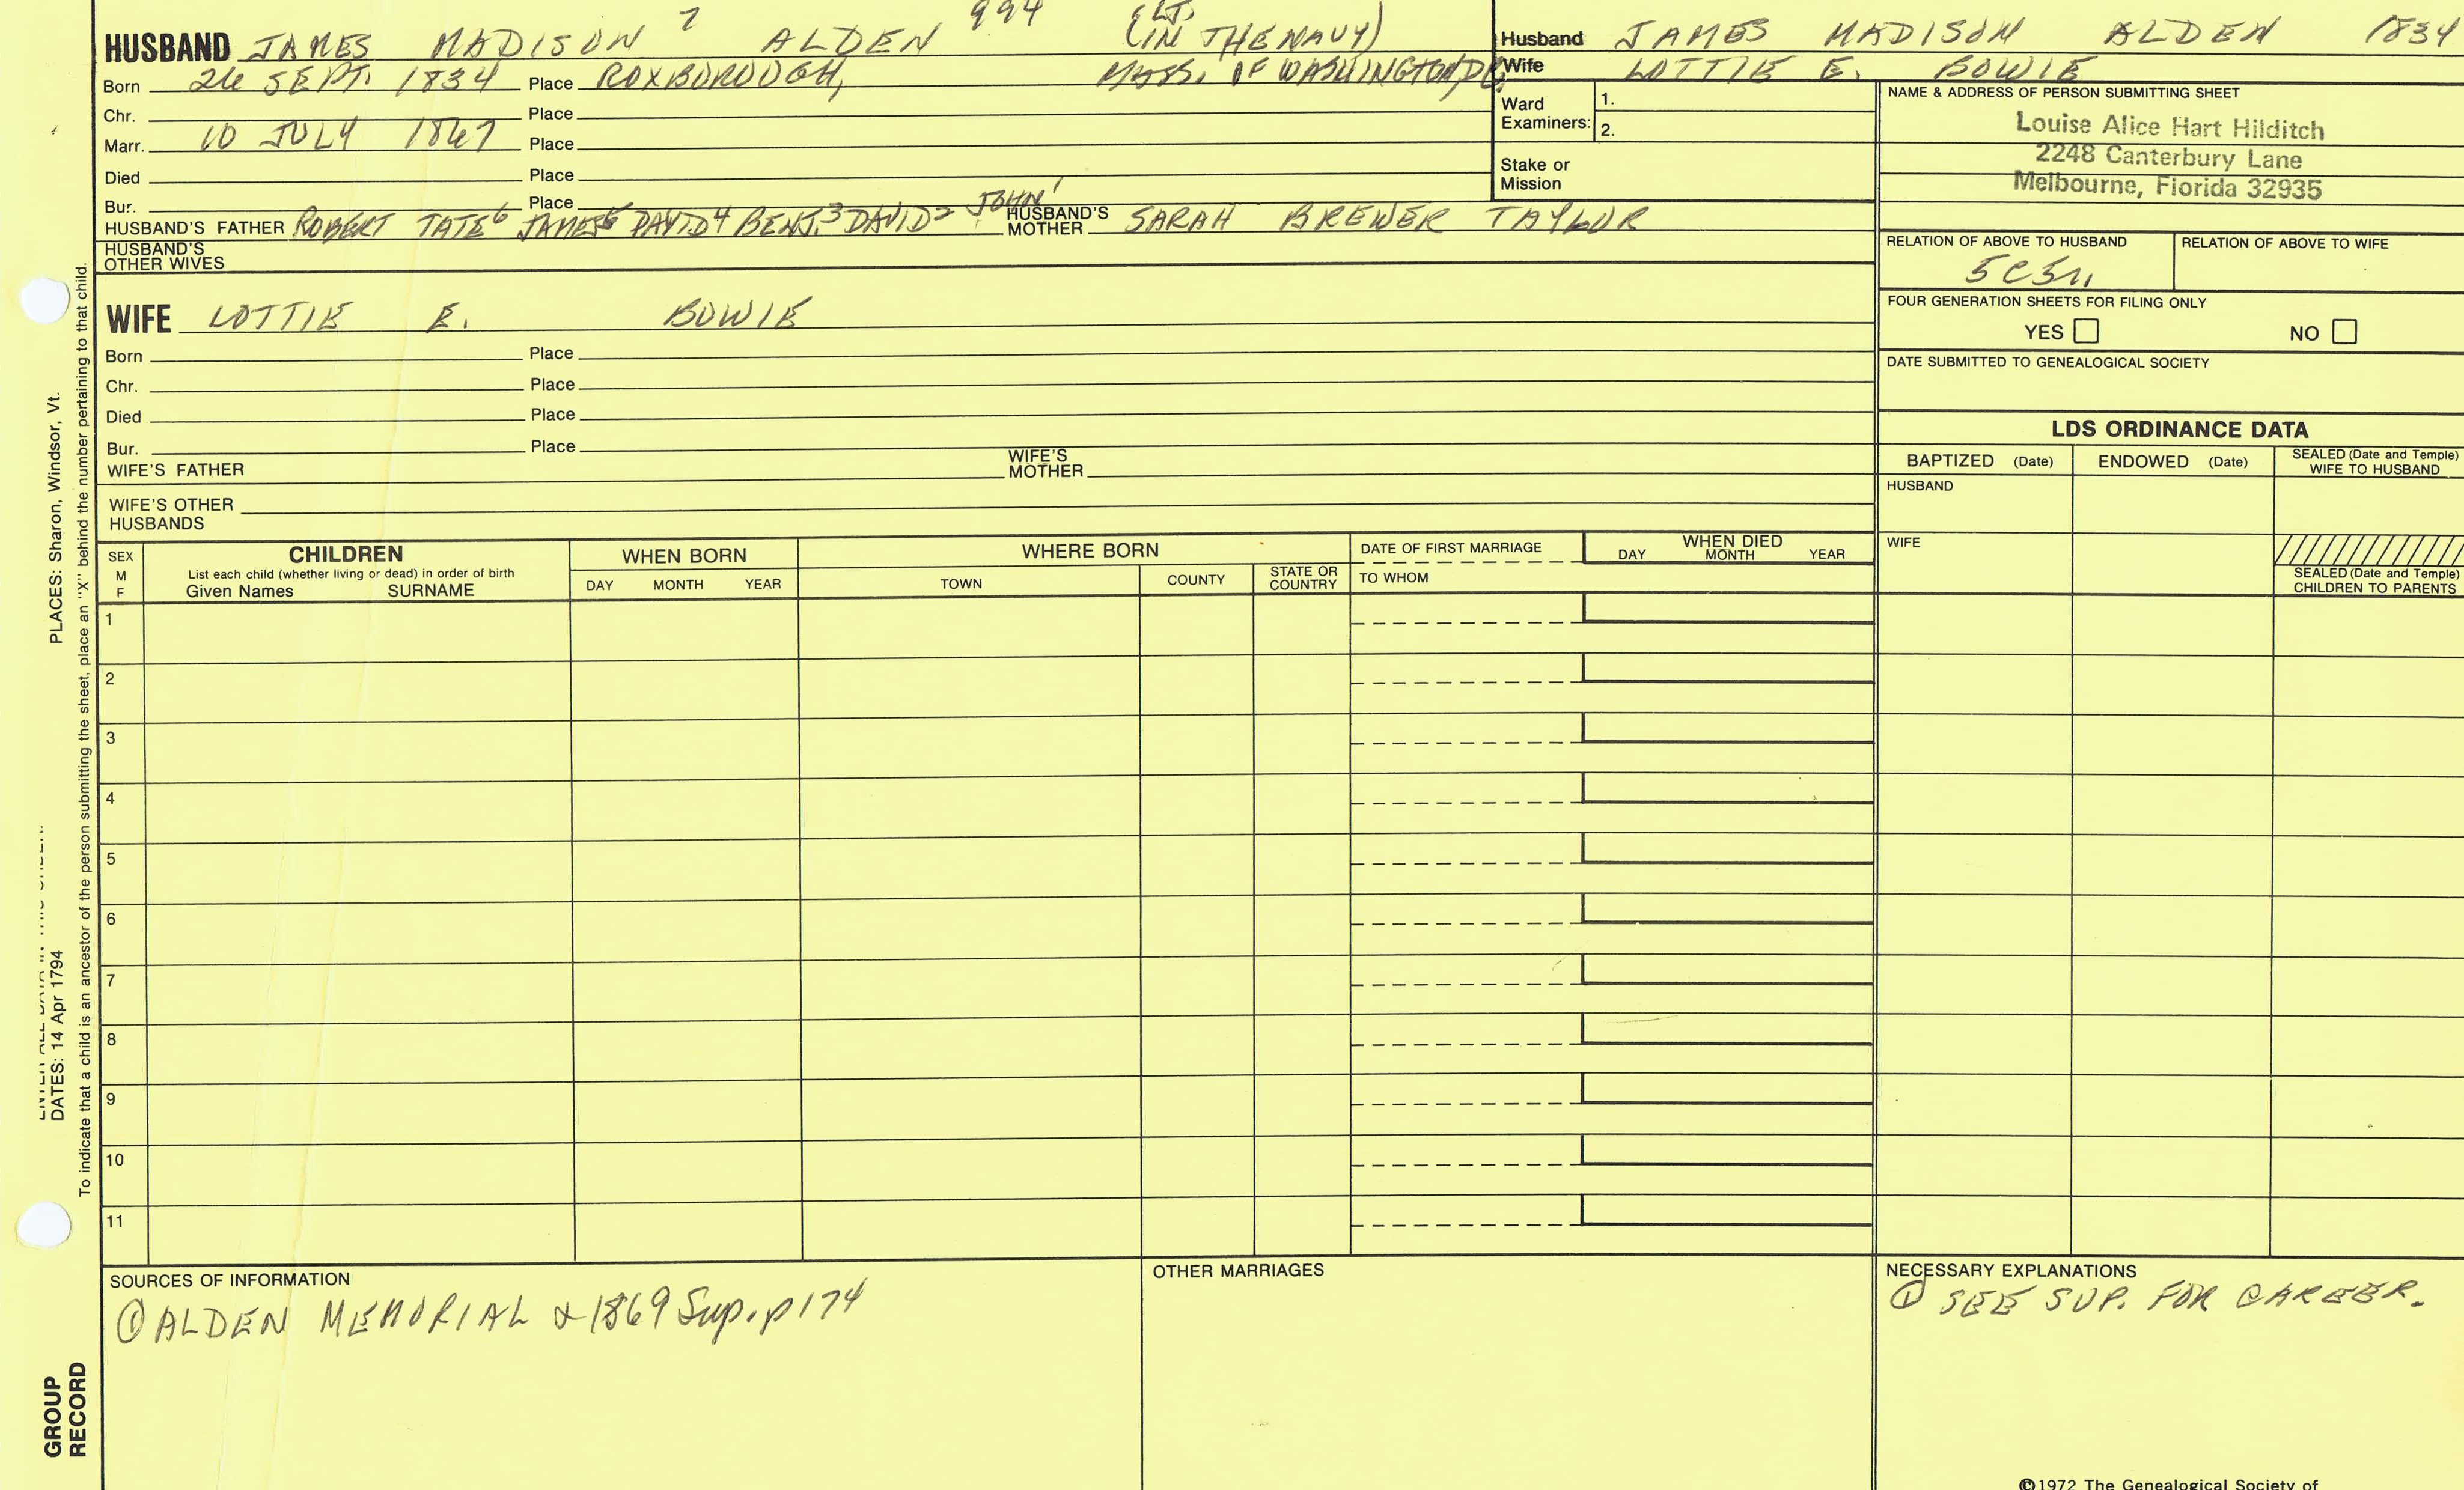 HUSBAND JAMES MADISON 7 ALDEN 994 (LT. IN THE NAVY)
Born 26 SEPT. 1834 Place ROXBOROUGH, MASS. OF WASHINGTON, D.C.
Chr. Place
Marr. 10 JULY 1867 Place
Died Place
Bur. Place
HUSBAND'S FATHER ROBERT TATE6 JAMES5 DAVID4 BENJ.3 DAVID2 JOHN1 HUSBAND'S MOTHER SARAH BREWER TAYLOR
HUSBAND'S OTHER WIVES
WIFE LOTTIE E. BOWIE
Born Place
Chr. Place
Died Place
Bur. Place
WIFE'S FATHER WIFE'S MOTHER
WIFE'S OTHER HUSBANDS
Husband JAMES MADISON ALDEN 1834
Wife LOTTIE E. BOWIE
Ward Examiners: 1.
2.
Stake or Mission
NAME & ADDRESS OF PERSON SUBMITTING SHEET
Louise Alice Hart Hilditch
2248 Canterbury Lane
Melbourne, Florida 32935
RELATION OF ABOVE TO HUSBAND RELATION OF ABOVE TO WIFE
5C5r.
FOUR GENERATION SHEETS FOR FILING ONLY
YES NO
DATE SUBMITTED TO GENEALOGICAL SOCIETY
LDS ORDINANCE DATA
BAPTIZED (Date) ENDOWED (Date) SEALED (Date and Temple) WIFE TO HUSBAND
HUSBAND
WIFE
SEALED (Date and Temple) CHILDREN TO PARENTS
SEX M F
CHILDREN
List each child (whether living or dead) in order of birth
Given Names SURNAME
WHEN BORN
DAY MONTH YEAR
WHERE BORN
TOWN COUNTY STATE OR COUNTRY
DATE OF FIRST MARRIAGE
TO WHOM
WHEN DIED
DAY MONTH YEAR
1
2
3
4
5
6
7
8
9
10
11
SOURCES OF INFORMATION
① ALDEN MEMORIAL & 1869 Sup. p174
OTHER MARRIAGES
NECESSARY EXPLANATIONS
① SEE SUP. FOR CAREER.
©1972 The Genealogical Society of
PLACES: Sharon, Windsor, Vt.
DATES: 14 Apr 1794
To indicate that a child is an ancestor of the person submitting the sheet, place an "X" behind the number pertaining to that child.
GROUP
RECORD